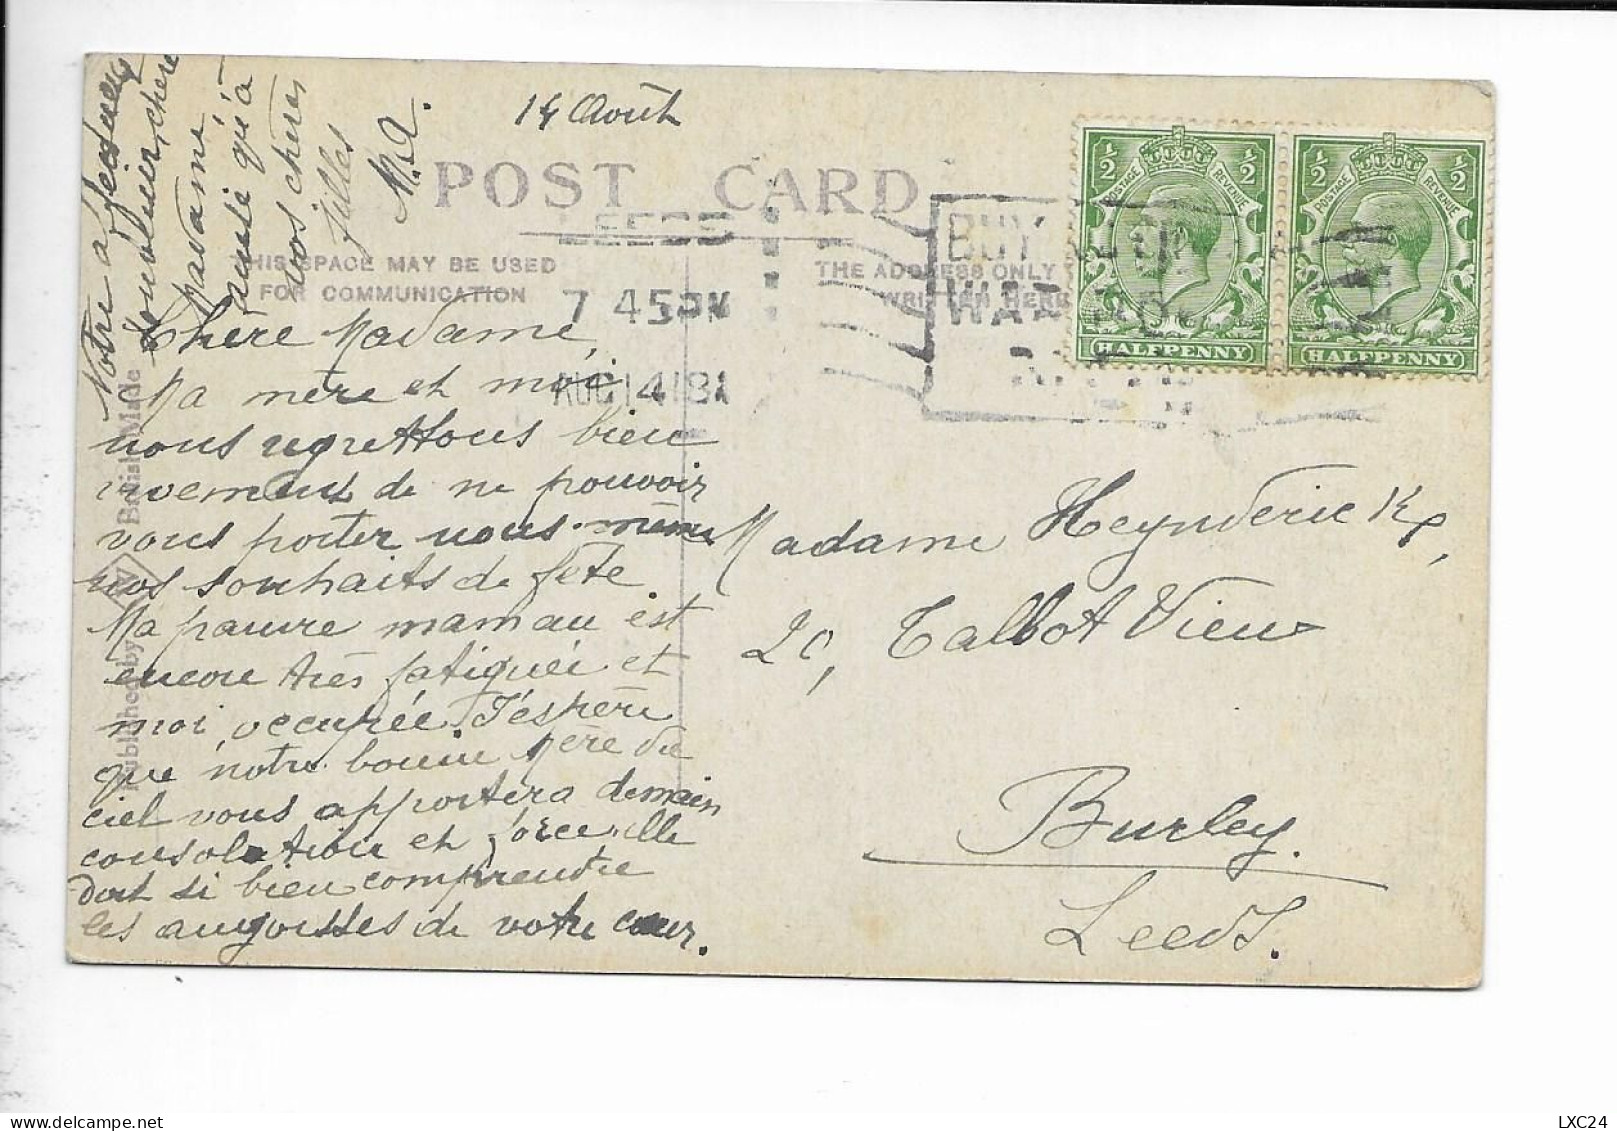 14 Août
POST CARD
LEEDS
7 45 PM
AUG 14 18
BUY
WAR
THIS SPACE MAY BE USED
FOR COMMUNICATION
THE ADDRESS ONLY
WRITTEN HERE
POSTAGE REVENUE
½ ½
HALFPENNY
POSTAGE REVENUE
½ ½
HALFPENNY
Chère Madame,
Ma mère et moi
nous regrettons bien
vivement de ne pouvoir
vous porter nous-même
nos souhaits de fête
Ma pauvre maman est
encore très fatiguée et
moi, occupée. J'espère
que notre bonne Mère du
ciel vous apportera demain
consolation et force, elle
doit si bien comprendre
les angoisses de votre cœur.
Notre affectueux
souvenir, chère
Madame,
ainsi qu'à
vos chères
filles
M.A.
Madame Heynderickx,
20, Talbot View
Burley.
Leeds.
Published by
British Made
LXC24